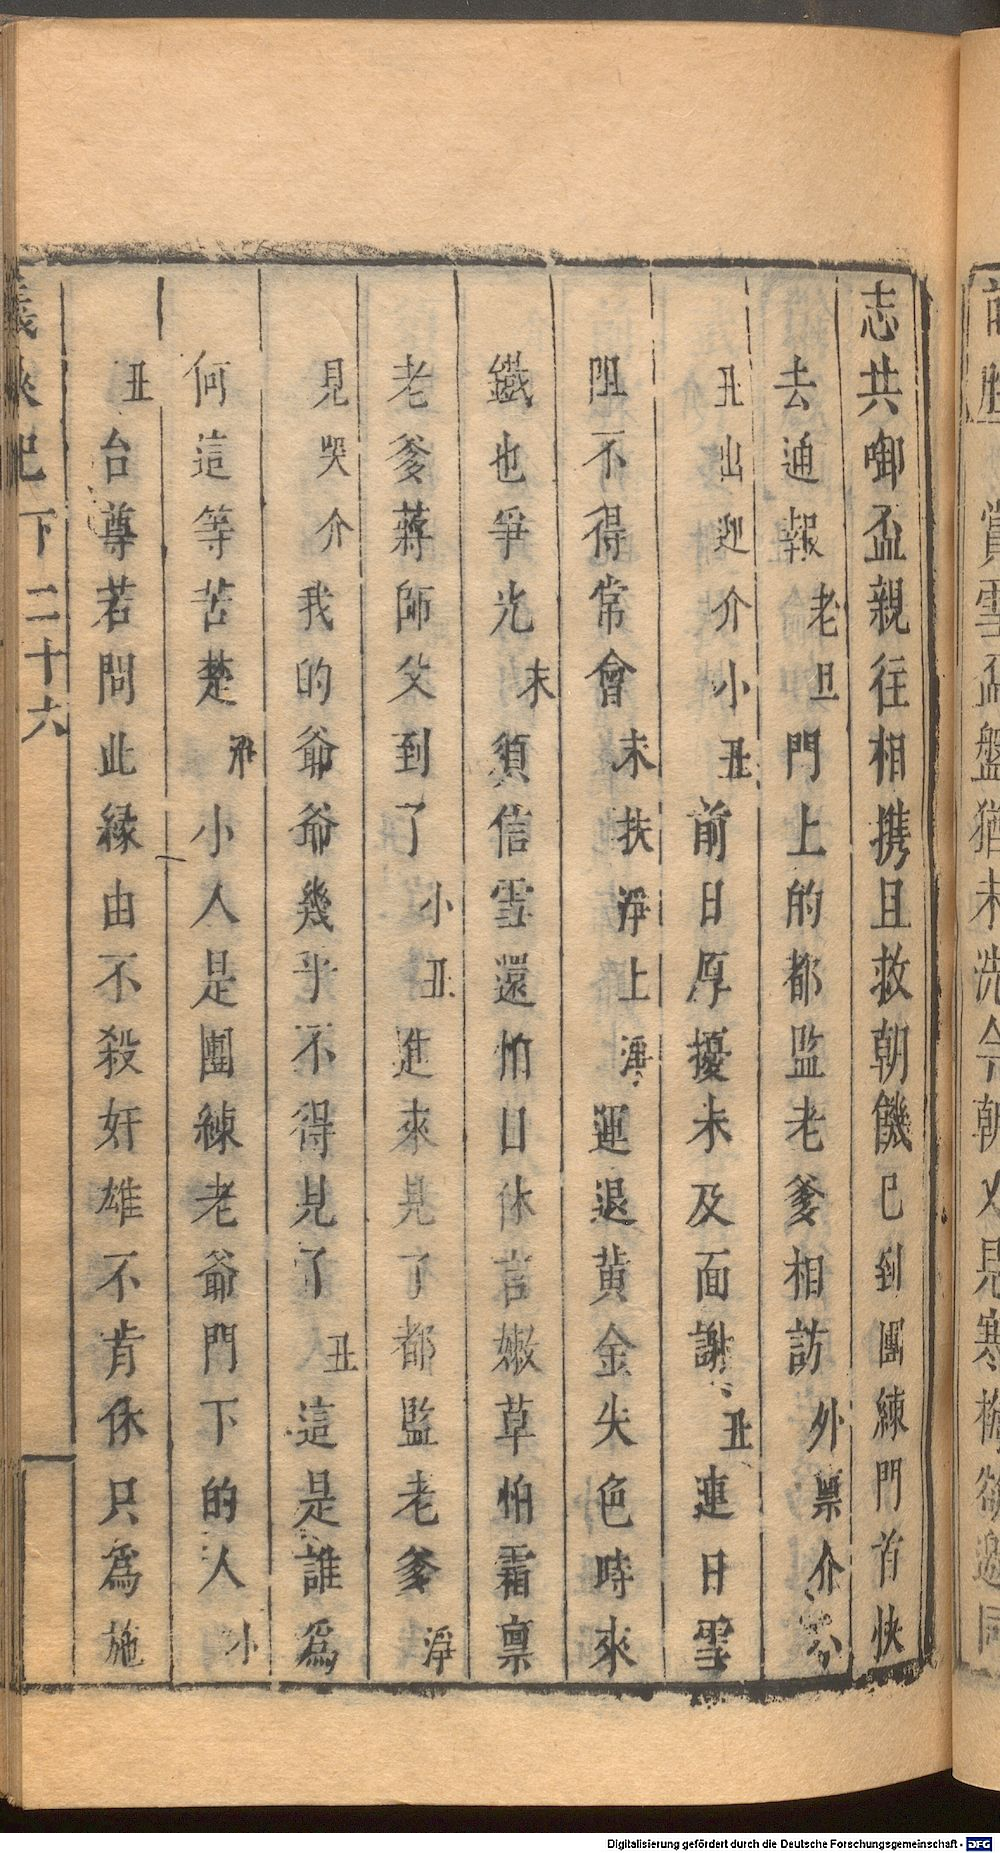 志共啣盃親往相携且救朝饑已到團練門首快
去通報老旦門上的都監老爹相訪外禀介
丑出迎介小丑前日厚擾未及面謝丑連日雪
阻不得常會末扶淨上淨運退黄金失色時來
鐵也爭光末須信雪還怕日休言嫩草怕霜禀
老爹蔣師父到了小丑進來見了都監老爹淨
見哭介我的爺爺幾乎不得見了丑這是誰爲
何這等苦楚淨小人是團練老爺門下的人小
丑台尊若問此緣由不殺奸雄不肯休只爲施
義俠記 下二十六
賞雪盃盤猶未洗今朝又見寒欲邀同
Digitalisierung gefördert durch die Deutsche Forschungsgemeinschaft - DFG